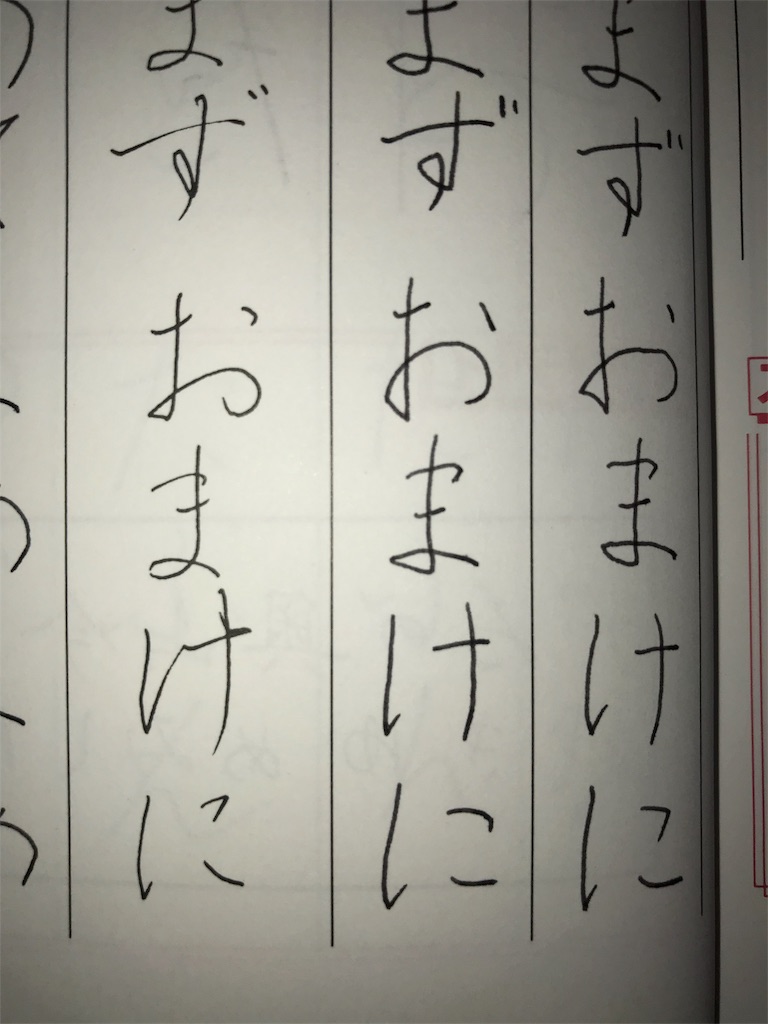 まず おまけに
まず おまけに
まず おまけに